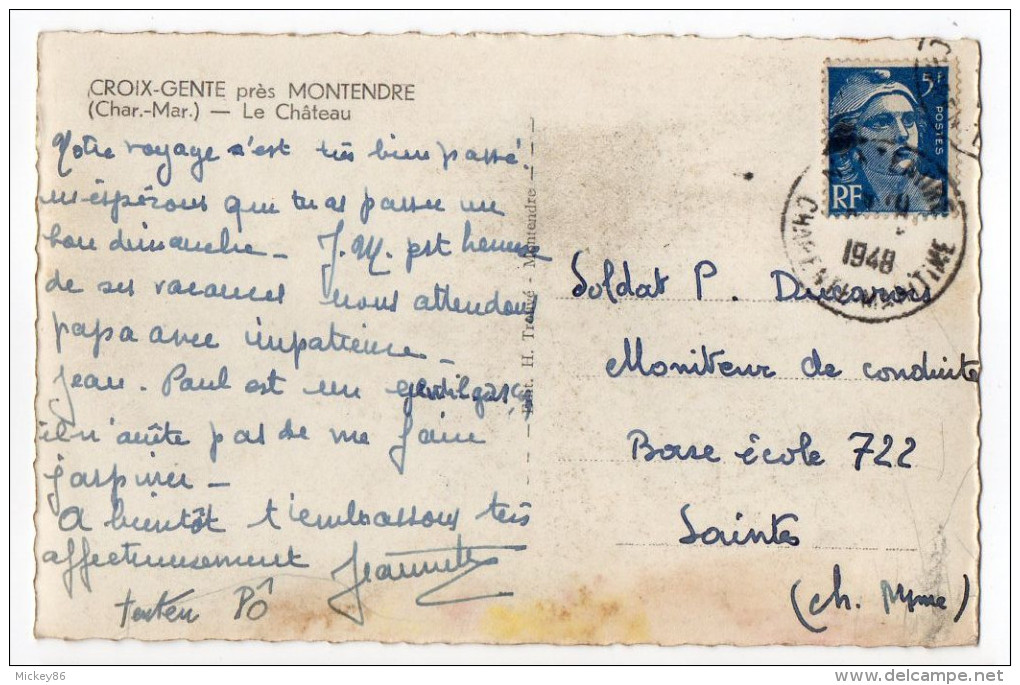 CROIX-GENTE près MONTENDRE
(Char.-Mar.) — Le Château
Notre voyage s'est très bien passé.
ns espérons que tu as passé un
bon dimanche — J.M. est heureux
de ses vacances nous attendons
papa avec impatience —
Jean-Paul est un gentil garçon
il n'arrête pas de me faire
jaspiner —
A bientôt t'embrassons très
affectueusement Jeannette
tonton Pô
Edit. H. Trouvé - Montendre
5F
POSTES
RF
1948
CHARENTE MARITIME
Soldat P.
Moniteur de conduite
Base école 722
Saintes
(Ch. Mme)
Mickey86
delcampe.net